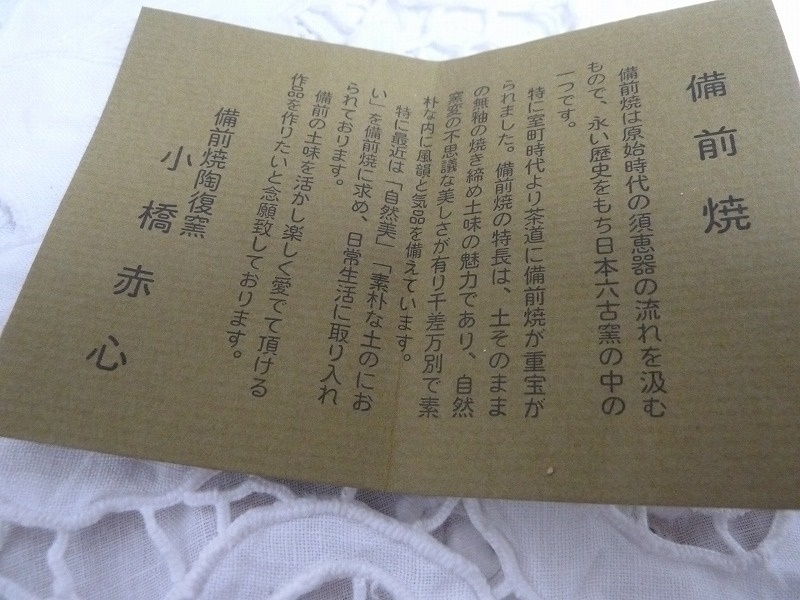 備前焼
備前焼は原始時代の須恵器の流れを汲む
もので、永い歴史をもち日本六古窯の中の
一つです。
特に室町時代より茶道に備前焼が重宝が
られました。備前焼の特長は、土そのまま
の無釉の焼き締め土味の魅力であり、自然
窯変の不思議な美しさが有り千差万別で素
朴な内に風韻と気品を備えています。
特に最近は「自然美」「素朴な土のにお
い」を備前焼に求め、日常生活に取り入れ
られております。
備前の土味を活かし楽しく愛でて頂ける
作品を作りたいと念願致しております。
備前焼陶復窯
小橋赤心